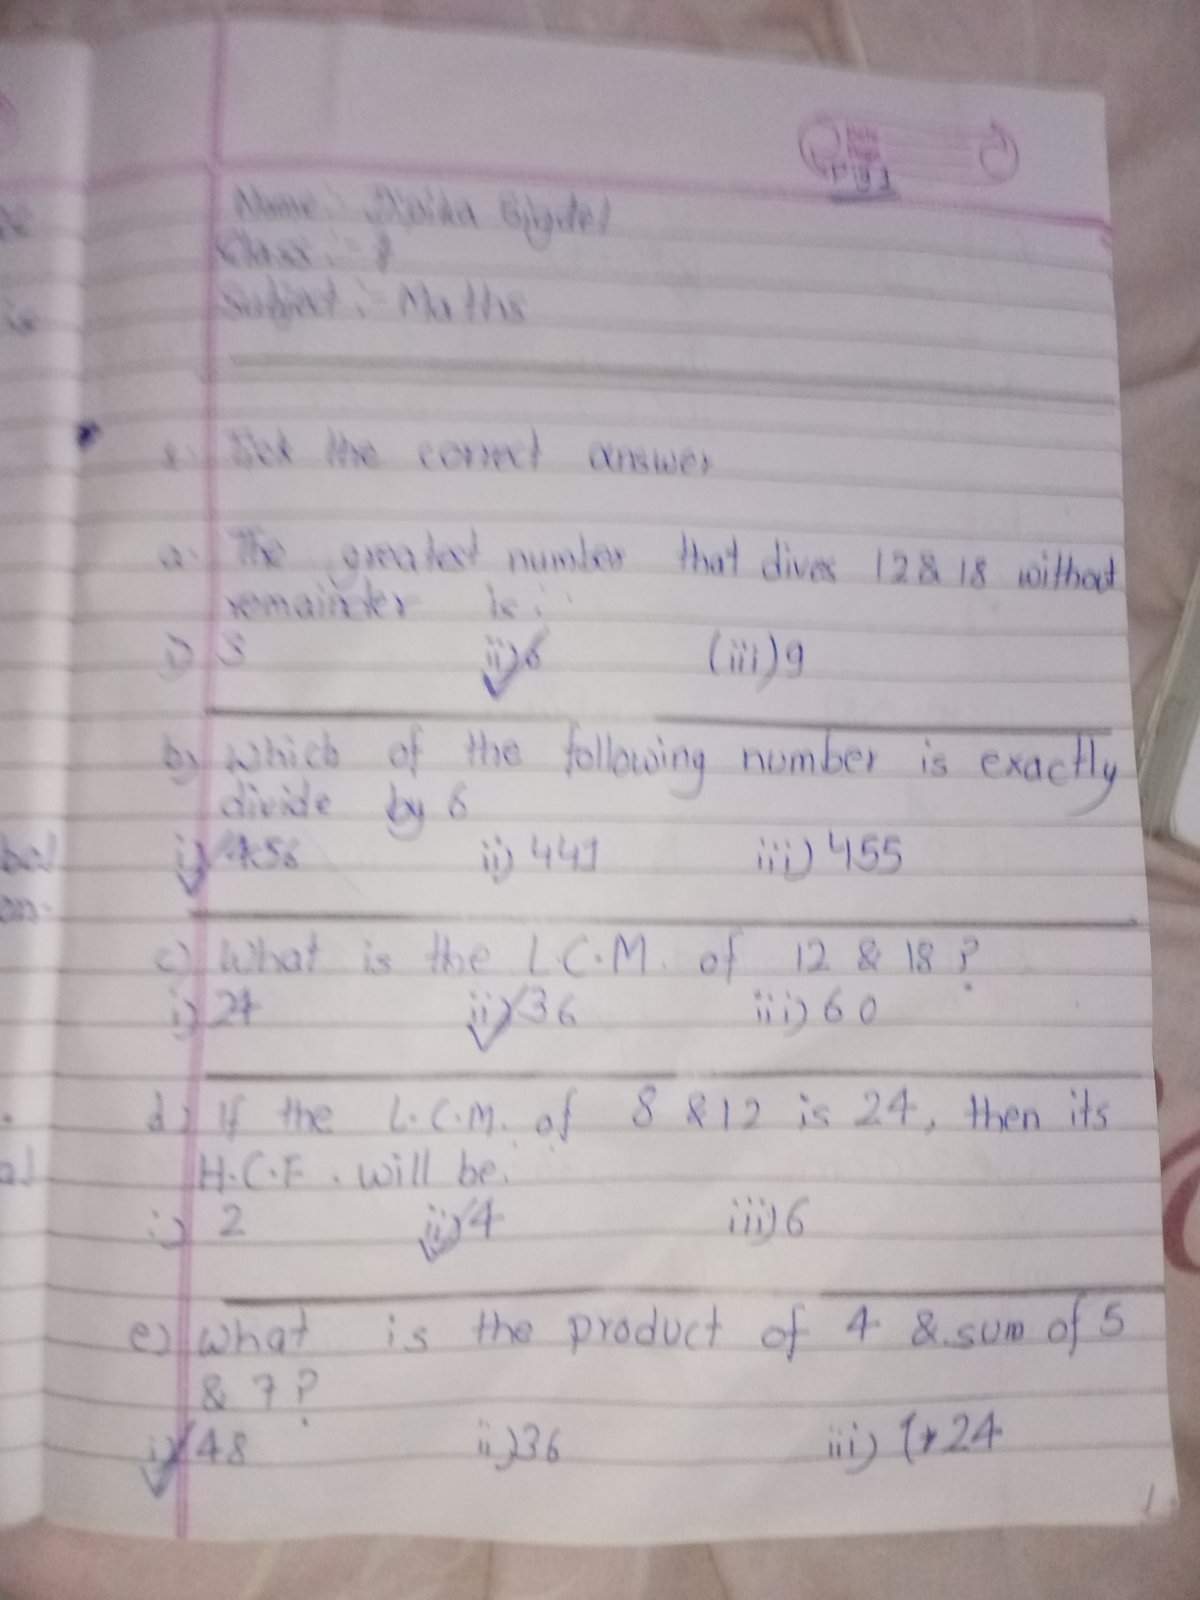 Name:
Class:-
Subject:- Maths
Tick the correct answer
a. The greatest number that dives 12 & 18 without
remainder is.
i) 3 ii) 6 (iii) 9
b) Which of the following number is exactly
divide by 6
i) 456 ii) 441 iii) 455
c) What is the L.C.M. of 12 & 18 ?
i) 24 ii) 36 iii) 60
d) If the L.C.M. of 8 & 12 is 24, then its
H.C.F. will be.
i) 2 ii) 4 iii) 6
e) What is the product of 4 & sum of 5
& 7 ?
i) 48 ii) 36 iii) 24